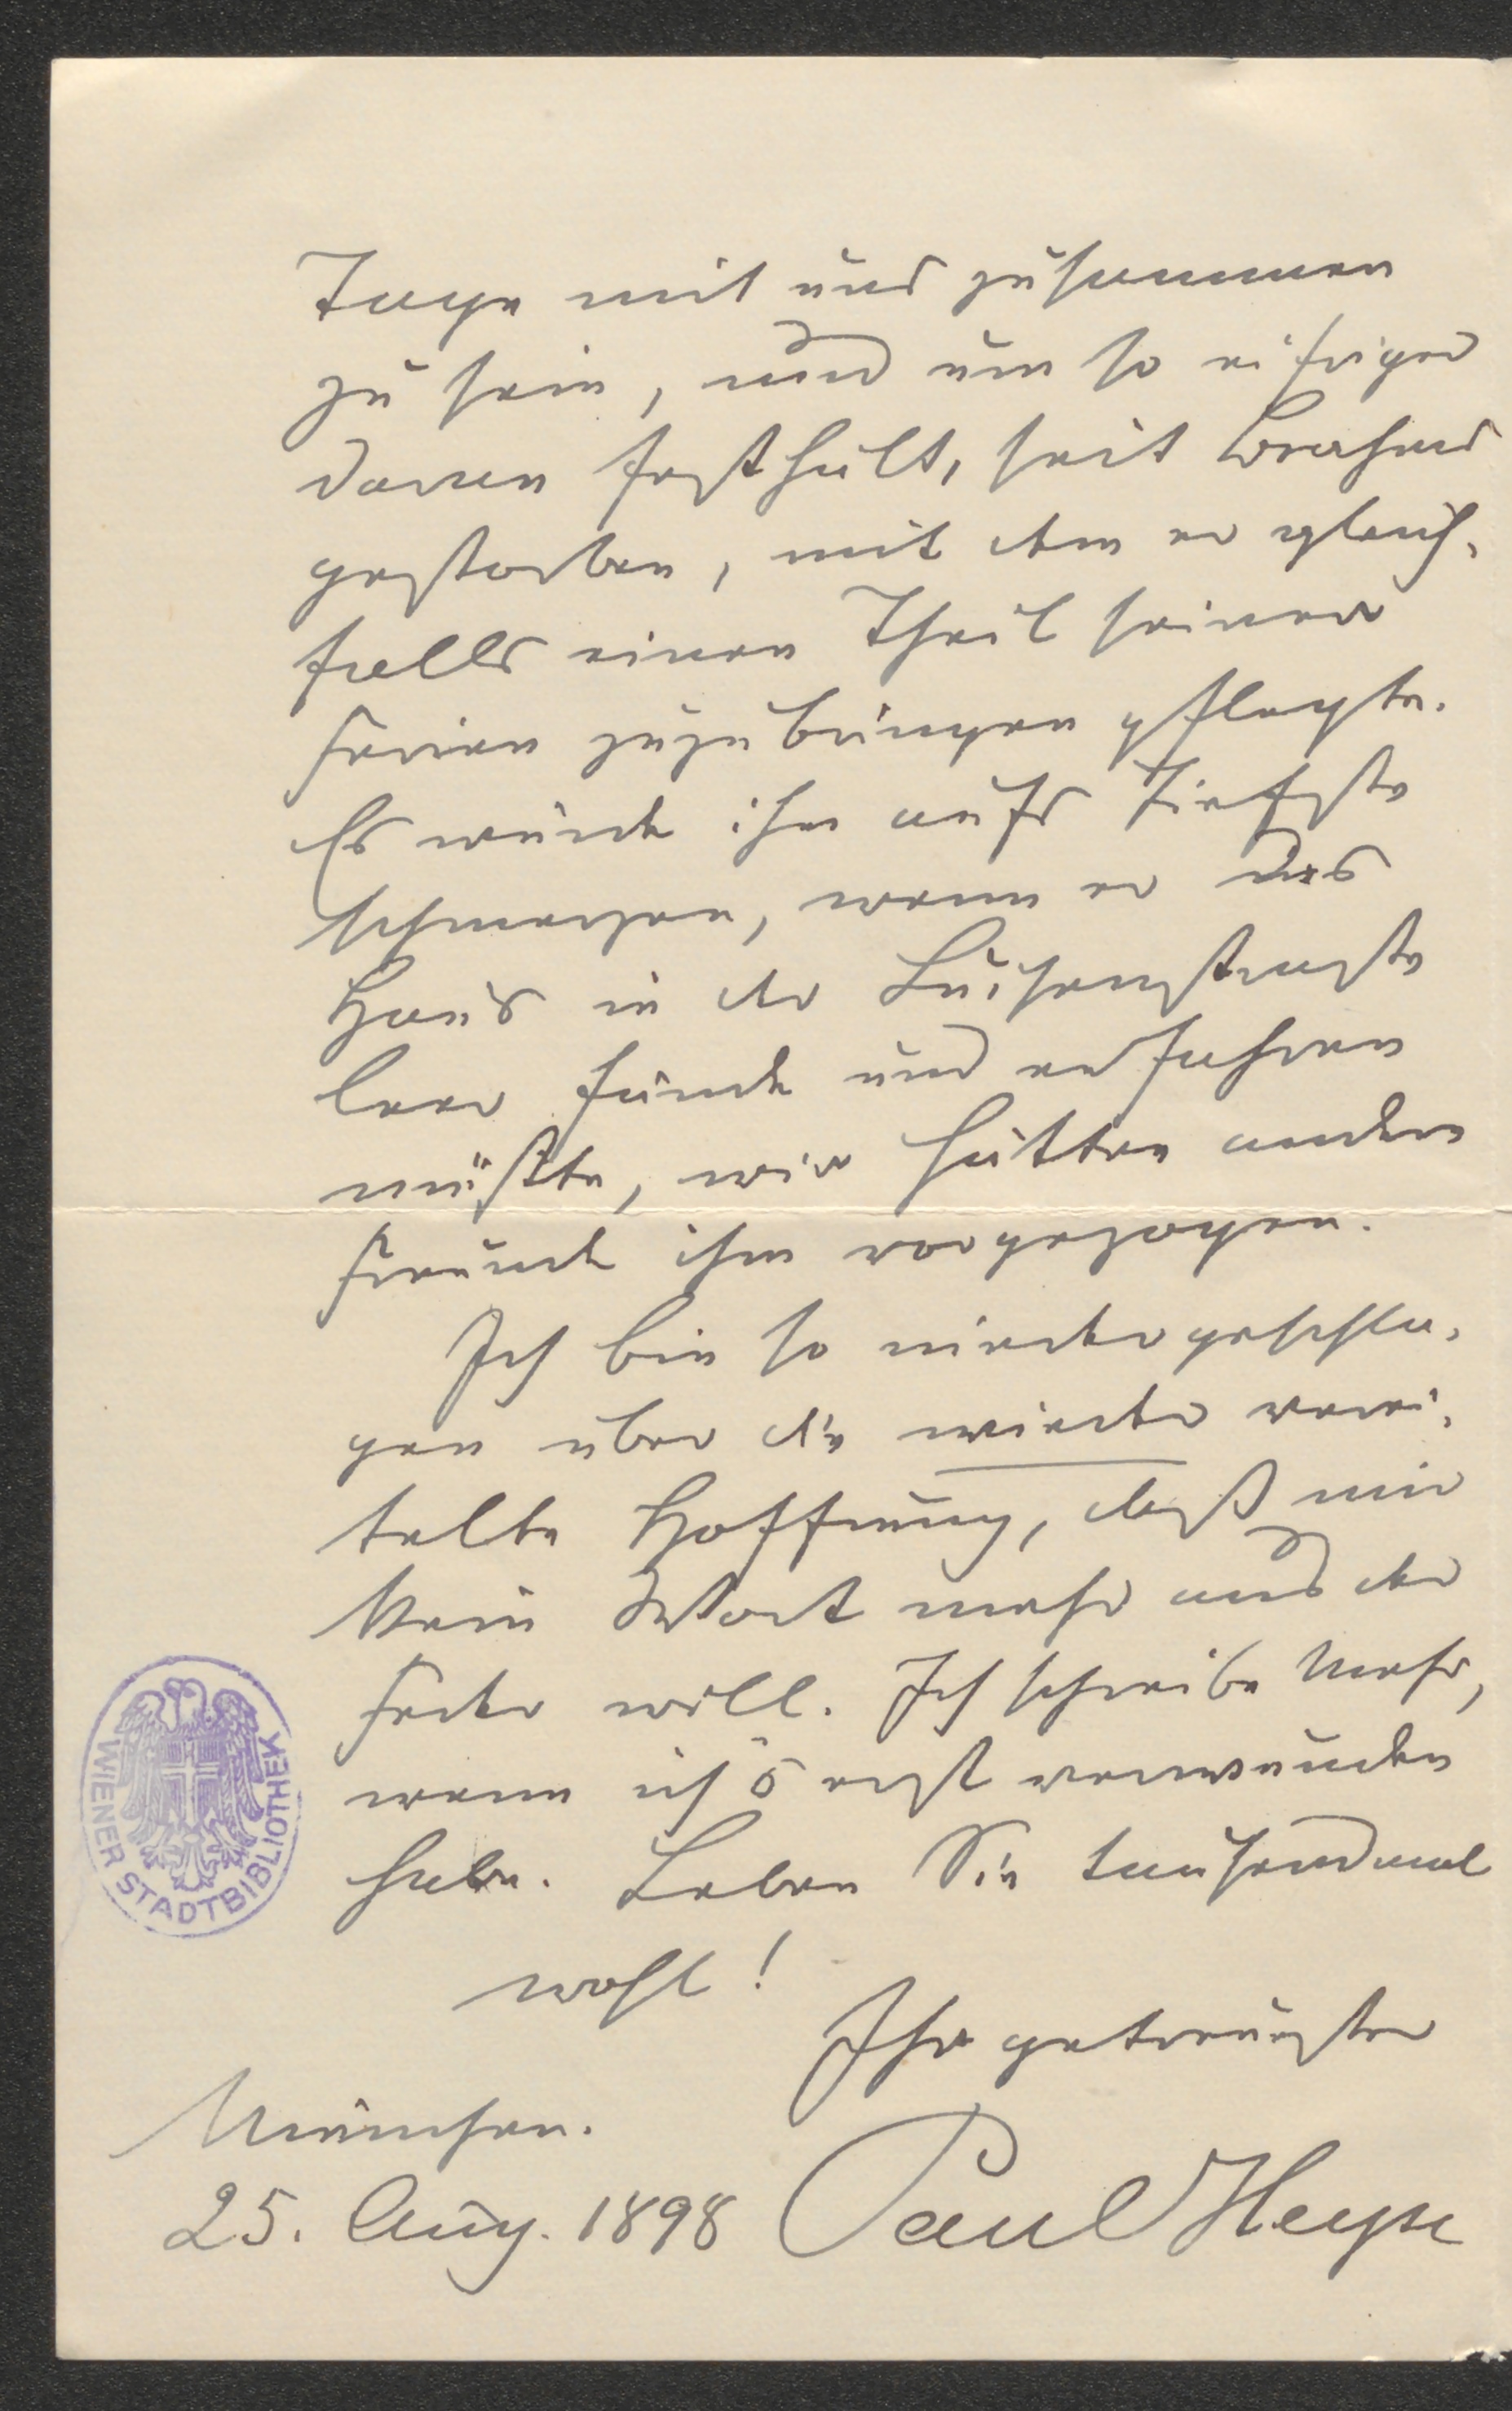 Tage mit uns zusammen
zu sein, und um so eifriger
daran festhält, seit Brahms
gestorben, mit dem er gleich-
falls einen Theil seiner
Ferien zuzubringen pflegte.
Es würde ihn aufs Tiefste
schmerzen, wenn er das
Haus in der Luisenstraße
leer fände und erfahren
müßte, wir hätten andere
Freunde ihm vorgezogen.
Ich bin so niedergeschla-
gen über die wieder verei-
telte Hoffnung, daß mir
kein Wort mehr aus der
Feder will. Ich schreibe mehr,
wenn ich's erst verwunden
habe. Leben Sie tausendmal
wohl!
Ihr getreuester
München.
25. Aug. 1898 Paul Heyse
WIENER STADTBIBLIOTHEK